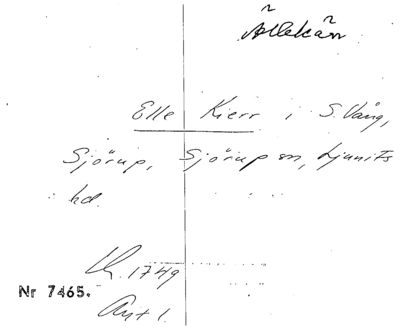 Ällekän
Elle Kierr i S. Vång,
Sjörup, Sjörup sn, Ljunits
hd.
Lk. 1749
Nr 7465.
Avt 1.